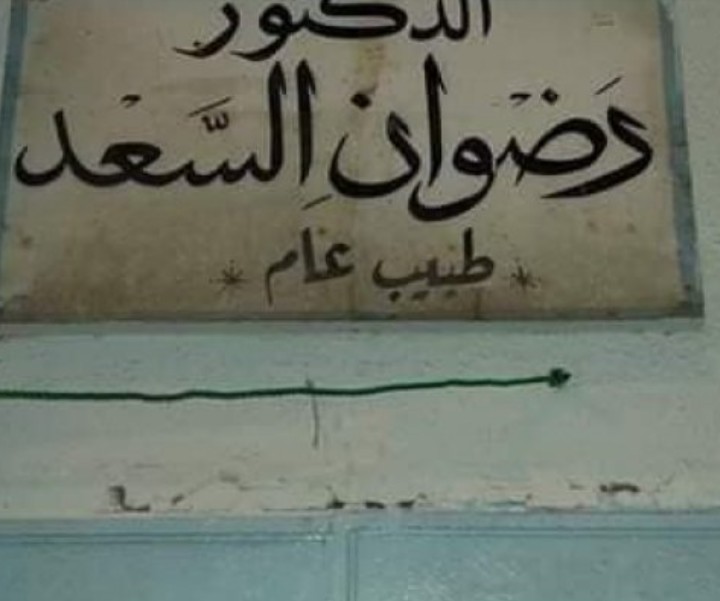 الدكتور
رَضوان السَّعْد
* طبيب عام *